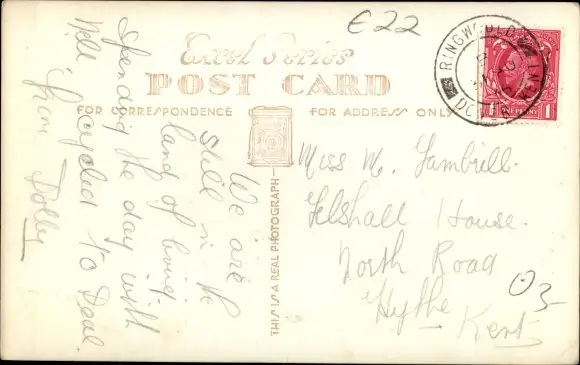 £22
Excel Series
POST CARD
FOR CORRESPONDENCE
FOR ADDRESS ONLY
THIS IS A REAL PHOTOGRAPH
RINGWOULD
1
ONE PENNY
1
We are
still in the
land of living.
Spending the day with
Well cycled to Deal.
from Dolby
Miss M. Gambrill.
Felshall House.
North Road
Hythe
Kent
03-